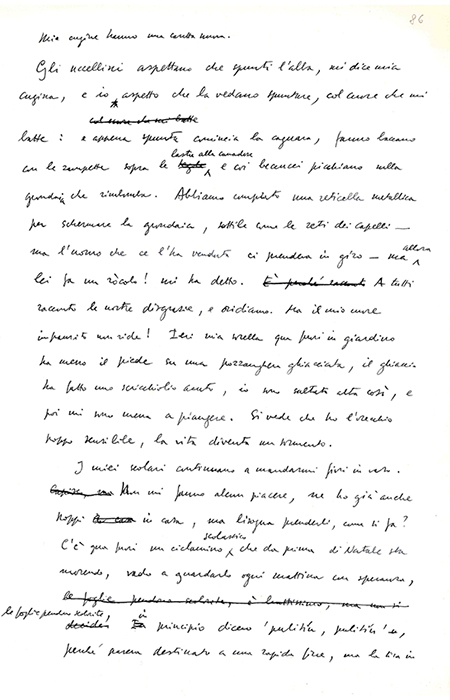 86
Mia cugina hanno una canta nera.
Gli uccellini aspettano che spunti l'alba, mi dice mia
cugina, e io aspetto che la vedano spuntare, col cuore che mi
col cuore che mi batte
batte : e appena spunta comincia la cagnara, fanno baccano
con le zampette sopra le lastre alla canadese e coi beccucci picchiano sulla
grondaia che rimbomba. Abbiamo comprato una reticella metallica
per schermare la grondaia, sottile come le reti dei capelli —
ma l'uomo che ce l'ha venduta ci prendeva in giro — ma allora
lei fa un ròcolo! mi ha detto. E perché racconti A tutti
racconto le nostre disgrazie, e ridiamo. Ma il mio cuore
impaurito non ride! Ieri mia sorella qua fuori in giardino
ha messo il piede su una pozzanghera ghiacciata, il ghiaccio
ha fatto uno scricchiolio acuto, io sono saltata alta così, e
poi mi sono messa a piangere. Si vede che ho l'orecchio
troppo sensibile, la vita diventa un tormento.
I miei scolari continuano a mandarmi fiori in vaso.
Non mi fanno alcun piacere, ne ho già anche
troppi in casa, ma bisogna prenderli, come si fa?
C'è qua fuori un ciclamino scolastico che da prima di Natale sta
morendo, vado a guardarlo ogni mattina con speranza,
le foglie pendono scolorite, è bruttissimo, ma non si
le foglie pendono scolorite,
decide! in principio dicevo 'pulitín, pulitín' e,
perché pareva destinato a una rapida fine, ma la tira in